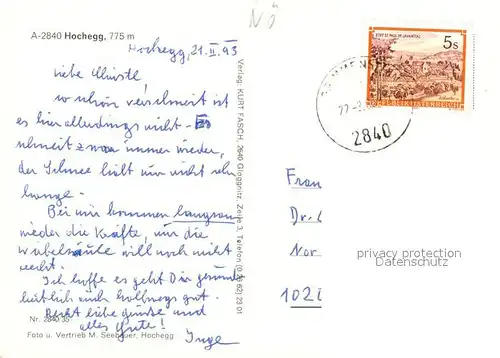 NÖ
A-2840 Hochegg, 775 m
Hochegg, 21.II.93
Liebe Christl
so schön verschneit ist
es hier allerdings nicht - Es
schneit zwar immer wieder,
der Schnee hält nur nicht sehr
lange.
Bei mir kommen langsam
wieder die Kräfte, nur die
Wirbelsäule will noch nicht
recht.
Ich hoffe es geht Dir gesund-
heitlich auch halbwegs gut.
Recht liebe Grüße und
alles Gute!
Inge
Nr. 2840 35
Foto u. Vertrieb M. Seebauer, Hochegg
Verlag: KURT FASCH, 2640 Gloggnitz, Zeile 3, Telefon (0 26 62) 23 01
STIFT ST. PAUL IM LAVANTTAL
5s
REPUBLIK ÖSTERREICH
2840
Frau
Dr.
Nor
privacy protection
Datenschutz
102